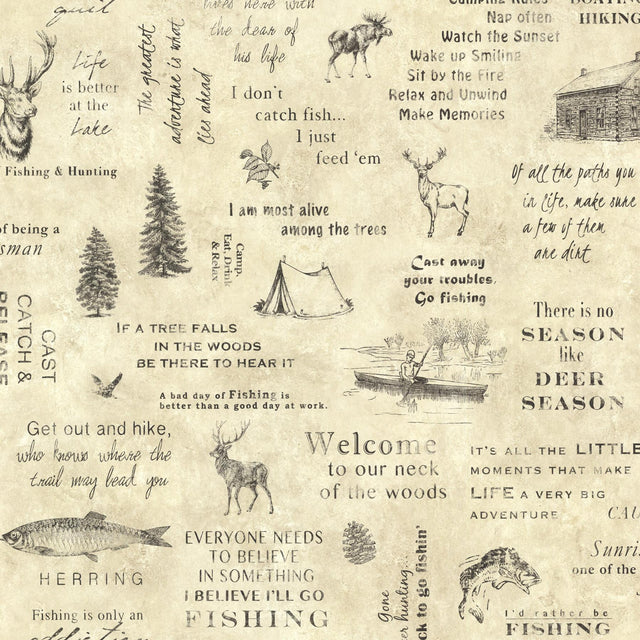 quil
lives here with
the dear of
his life
Camping Rules
Nap often
Watch the Sunset
Wake up Smiling
Sit by the Fire
Relax and Unwind
Make Memories
BOATING
HIKING
Life
is better
at the
Lake
The greatest
adventure is what
lies ahead
I don't
catch fish...
I just
feed 'em
Fishing & Hunting
Of all the paths you
in life, make sure
a few of them
are dirt
I am most alive
among the trees
of being a
sman
Camp,
Eat, Drink
& Relax
Cast away
your troubles,
Go fishing
CAST
CATCH &
RELEASE
There is no
SEASON
like
DEER
SEASON
IF A TREE FALLS
IN THE WOODS
BE THERE TO HEAR IT
A bad day of Fishing is
better than a good day at work.
Get out and hike,
who knows where the
trail may lead you
Welcome
to our neck
of the woods
IT'S ALL THE LITTLE
MOMENTS THAT MAKE
LIFE A VERY BIG
ADVENTURE
CAU
HERRING
EVERYONE NEEDS
TO BELIEVE
IN SOMETHING
I BELIEVE I'LL GO
FISHING
Gone
er hunting.
ck to go fishin'
Sunri
one of the
I'd rather be
FISHING
Fishing is only an
addiction